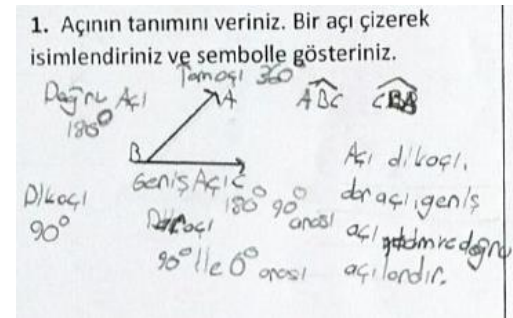 1. Açının tanımını veriniz. Bir açı çizerek
isimlendiriniz ve sembolle gösteriniz.
Tamaçı 360
Doğru Açı
180°
A
B
C
ABC CBA
Dikaçı
90°
Geniş Açı
180° 90°
arası
Daraçı
90° ile 0° arası
Açı dikaçı,
dar açı, geniş
açı ve doğru
açılardır.